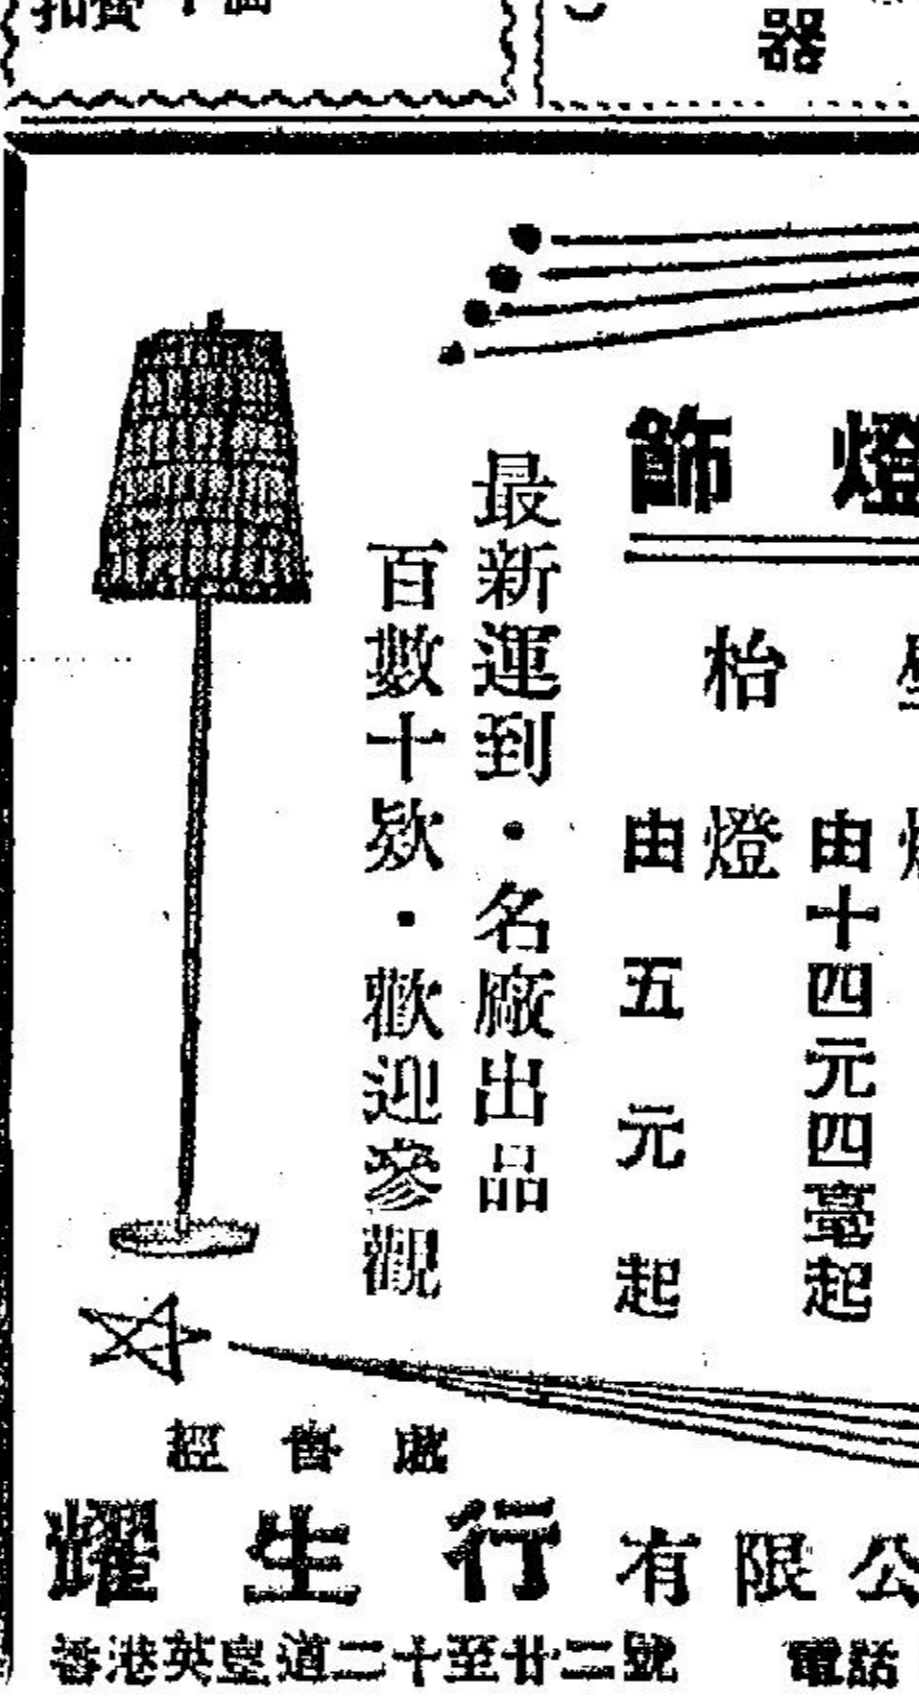 器
燈飾
燈
由十四元四毫起
枱燈
由五元起
最新運到·名廠出品
百數十欵·歡迎參觀
經售處
耀生行有限公
香港英皇道二十至廿二號 電話